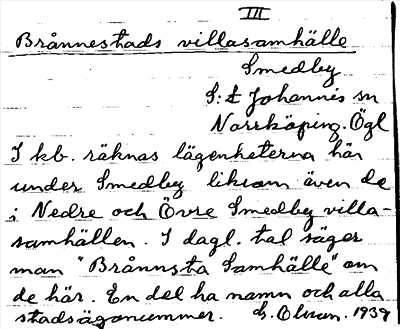 III
Brånnestads villasamhälle
Smedby
S:t Johannis sn
Norrköping. Ögl
I kb. räknas lägenheterna här
under Smedby liksom även de
i Nedre och Övre Smedby villa-
samhällen. I dagl. tal säger
man "Brånnsta Samhälle" om
de här. En del ha namn och alla
stadsägonummer. G. Olson. 1939